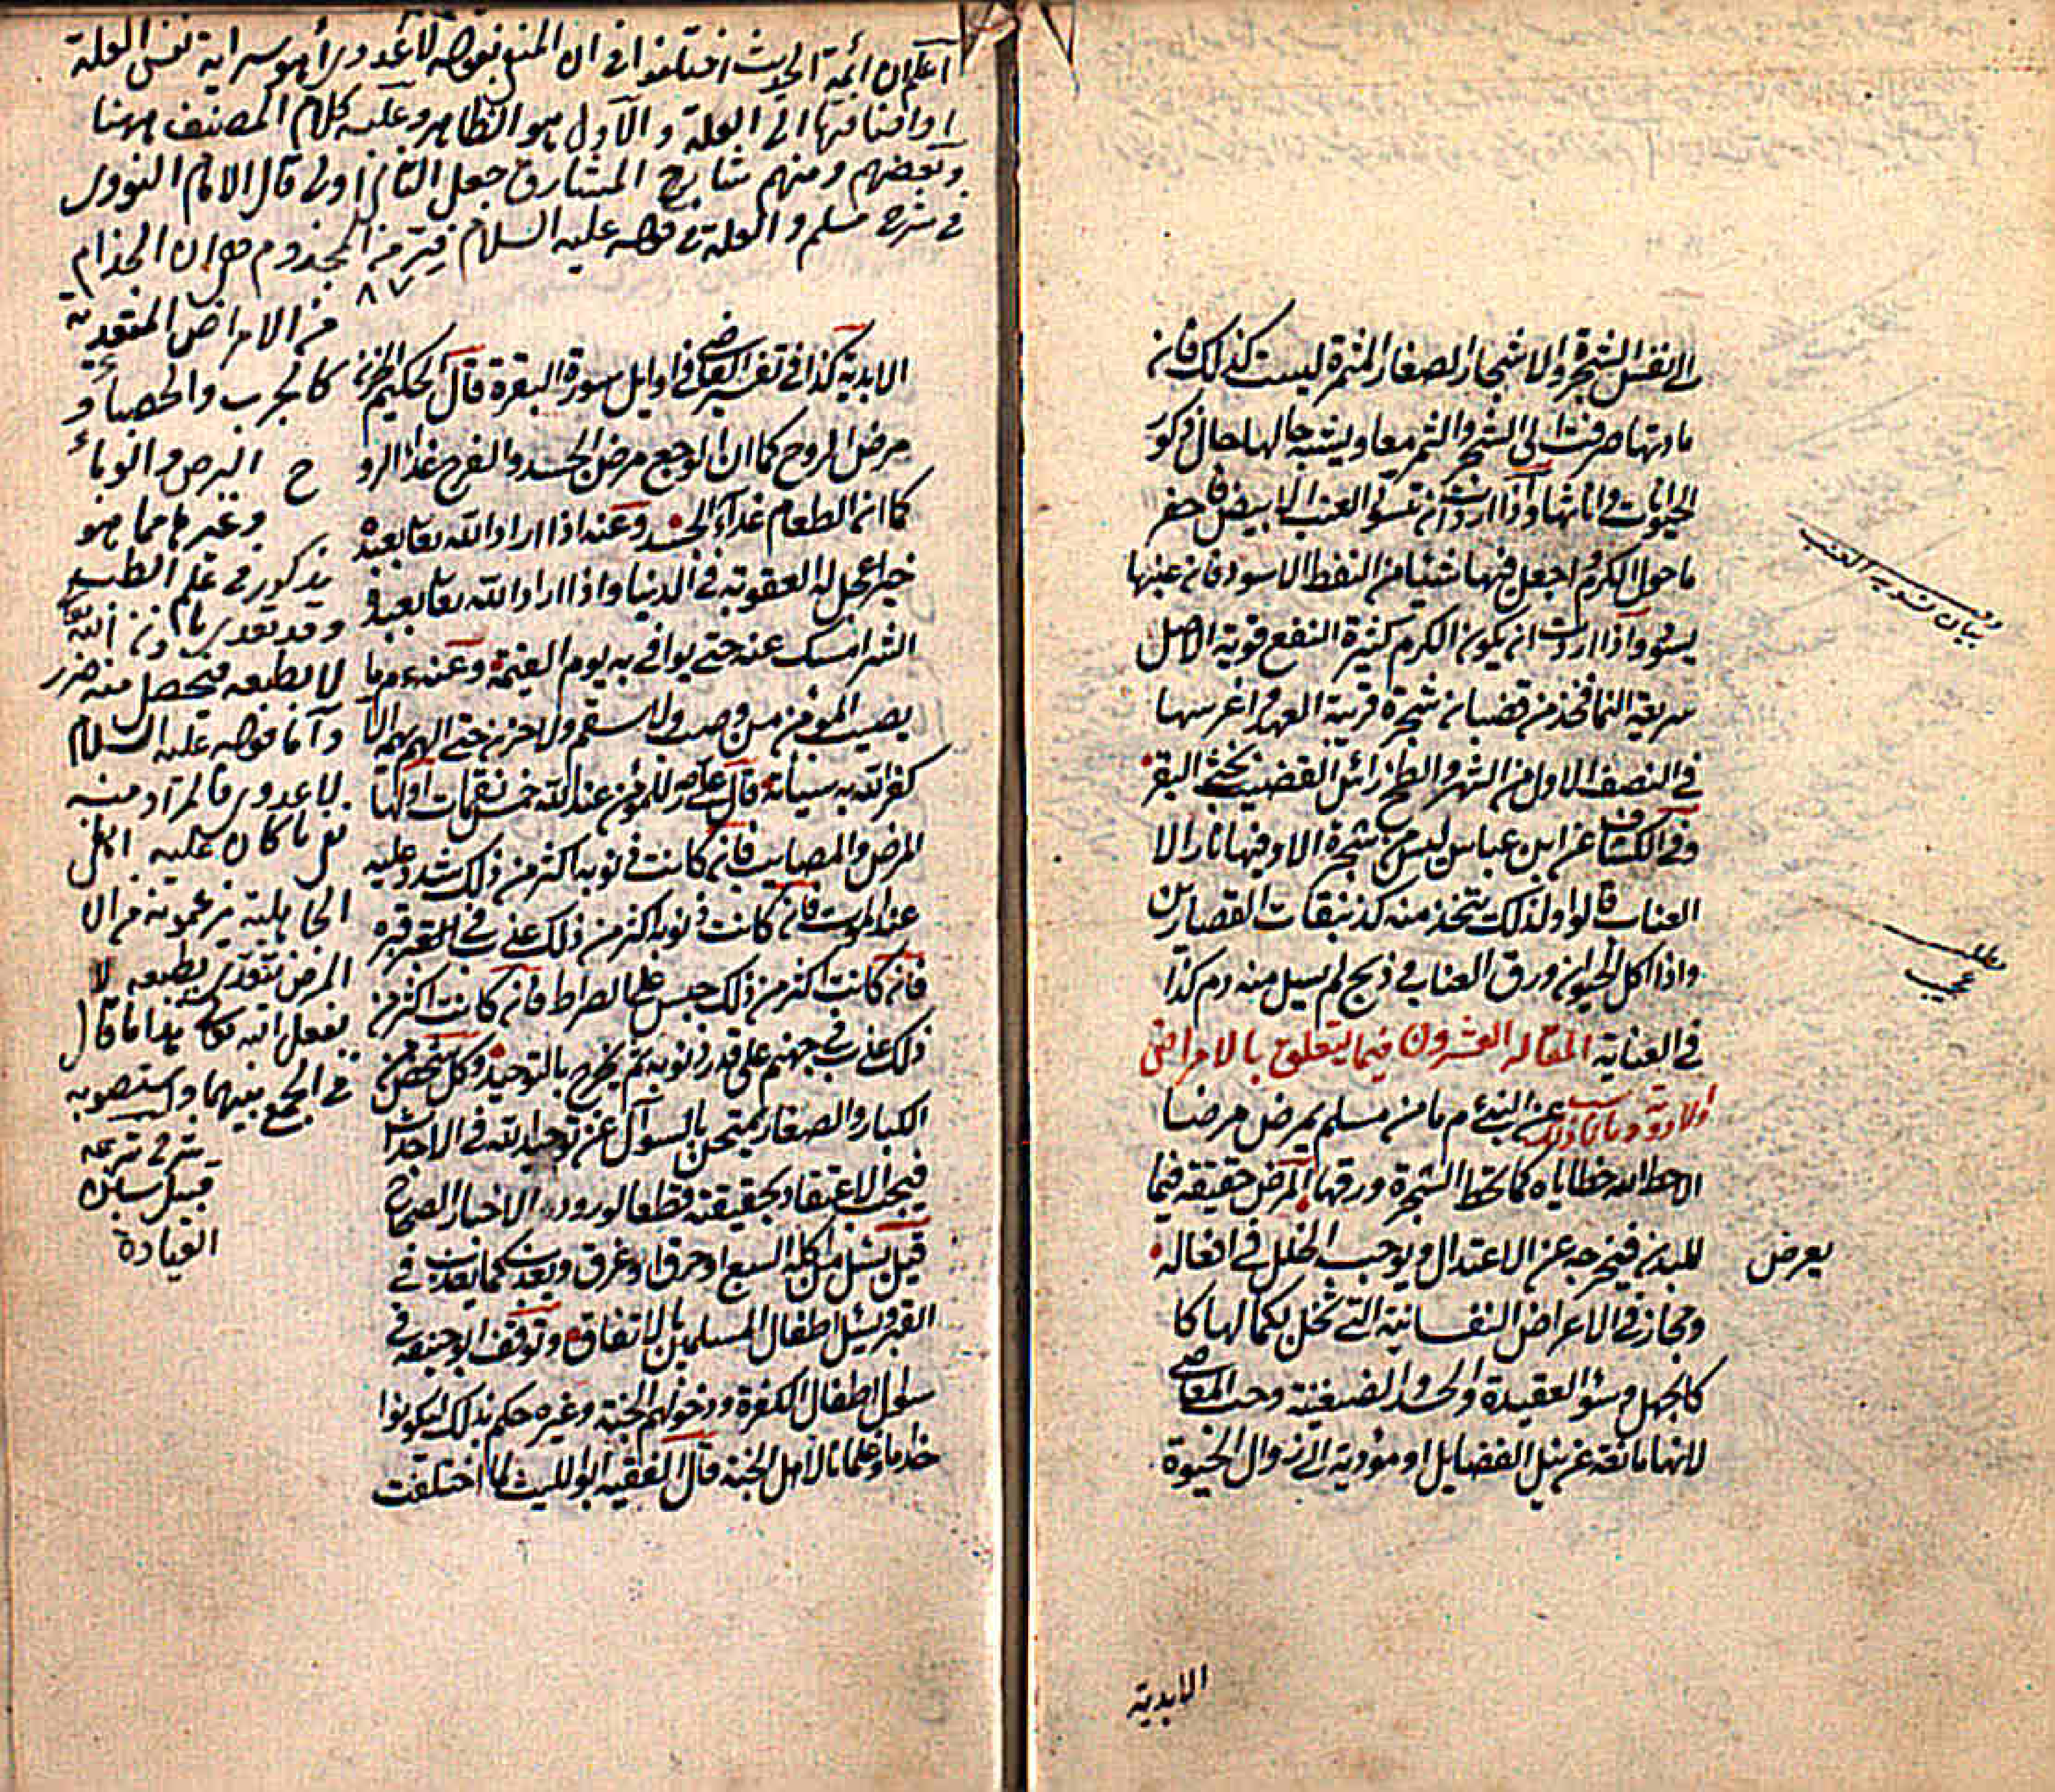 الى نفس الشجر والاشجار الصغار المثمرة ليست كذلك فان
مادتها صرفت الى الشجر والثمر معا ويشبه حالها حال ذكور
الحيوانات في اناثها واذا اردت ان تسود العنب الابيض فاحفر
ما حول الكرم واجعل فيها شيئا من النفط الاسود فان عنبها
يسود واذا اردت ان يكون الكرم كثيرة النفع قوية الاصل
سريعة النما فخذ من قضبان شجرة قريبة العهد واغرسها
في النصف الاول من الشهر والطخ رأس القضيب بخثي البقر
وفي الكشاف عن ابن عباس ليس من شجرة الا وفيها نار الا
العناب قالوا ولذلك يتخذ منه كذينقات القصارين
واذا اكل الحيوان ورق العناب في ذبح لم يسيل منه دم كذا
في العناية المقالة العشرون فيما يتعلق بالامراض
والادوية وما يناسب ذلك عن النبي م ما من مسلم يمرض مرضا
الا حط الله خطاياه كما تحط الشجرة ورقها المرض حقيقة فيما
يعرض للبدن فيخرجه عن الاعتدال ويوجب الخلل في افعاله
ومجاز في الاعراض النفسانية التي تخل بكمالها كا
كالجهل وسؤ العقيدة والحسد والضغينة وحب المعاصي
لانها مانعة عن نيل الفضايل او مؤدية الى زوال الحيوة
الابدية
بيان تسويد العنب
مطلب
عجيب
اعلم ان أئمة الحديث اختلفوا في ان المنفي بقوله لا عدوى أهو سراية نفس العلة
او اضافتها الى العلة والاول هو الظاهر وعليه كلام المصنف ههنا
وبعضهم ومنهم شارح المشارق جعل الثاني اولى قال الامام النووي
في شرح مسلم والعلة في قوله عليه السلام فر من المجذوم هي ان الجذام
من الامراض المتعدية
كالجرب والحصبأ و
البرص والوبأ
وغيرها مما هو
مذكور في علم الطب
وقد تعدى باذن الله تعالى
لا بطبعه فيحصل منه ضرر
وأما قوله عليه السلام
لا عدوى فالمراد منه
نفي ما كان عليه اهل
الجاهلية يزعمونه من ان
المرض يتعدى بطبعه لا
بفعل الله تعالى هذا ما قال
في الجمع بينهما واستصوبه
٨٧
الابدية كذا في تفسير القاضي في اوايل سورة البقرة قال الحكيم الحزن
مرض الروح كما ان الوجع مرض الجسد والفرح غذا الرو
ح
كما ان الطعام غذاء الجسد وعنه اذا اراد الله تعا بعبده
خيرا عجل له العقوبة في الدنيا واذا اراد الله تعا بعبده
الشر امسك عنه حتى يوافي به يوم القيمة وعنه م ما
يصيب المؤمن من وصب ولا سقم ولا حزن حتى الهم يهمه الا
كفر الله به سيئاته قال للمؤمن عند الله خمس نقمات اولها
المرض والمصايب فان كانت ذنوبه اكثر من ذلك شدد عليه
عند الموت فان كانت ذنوبه اكثر من ذلك عذب في قبره
فان كانت اكثر من ذلك حبس على الصراط فان كانت اكثر من
ذلك عذب في جهنم على قدر ذنوبه ثم يخرج بالتوحيد وكل شخص من
الكبار والصغار يمتحن بالسوال عن توحيد الله في الاجداث
فيجب الاعتقاد بحقيقته قطعا لورود الاخبار الصحاح
قيل يسئل من اكله السبع او حرق او غرق ويعذب كما يعذب في
القبر ويسئل اطفال المسلمين بالاتفاق وتوقف ابو حنيفة في
سؤال اطفال الكفرة ودخولهم الجنة وغيره حكم بذلك ليكونوا
خداما وغلمانا لاهل الجنة قال الفقيه ابو الليث لما اختلفت